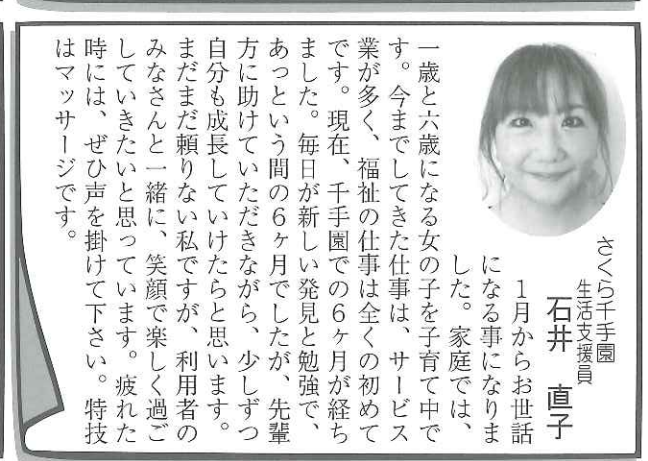 さくら千手園
生活支援員
石井 直子
1月からお世話
になる事になりま
した。家庭では、
一歳と六歳になる女の子を子育て中で
す。今までしてきた仕事は、サービス
業が多く、福祉の仕事は全くの初めて
です。現在、千手園での6ヶ月が経ち
ました。毎日が新しい発見と勉強で、
あっという間の6ヶ月でしたが、先輩
方に助けていただきながら、少しずつ
自分も成長していけたらと思います。
まだまだ頼りない私ですが、利用者の
みなさんと一緒に、笑顔で楽しく過ご
していきたいと思っています。疲れた
時には、ぜひ声を掛けて下さい。特技
はマッサージです。